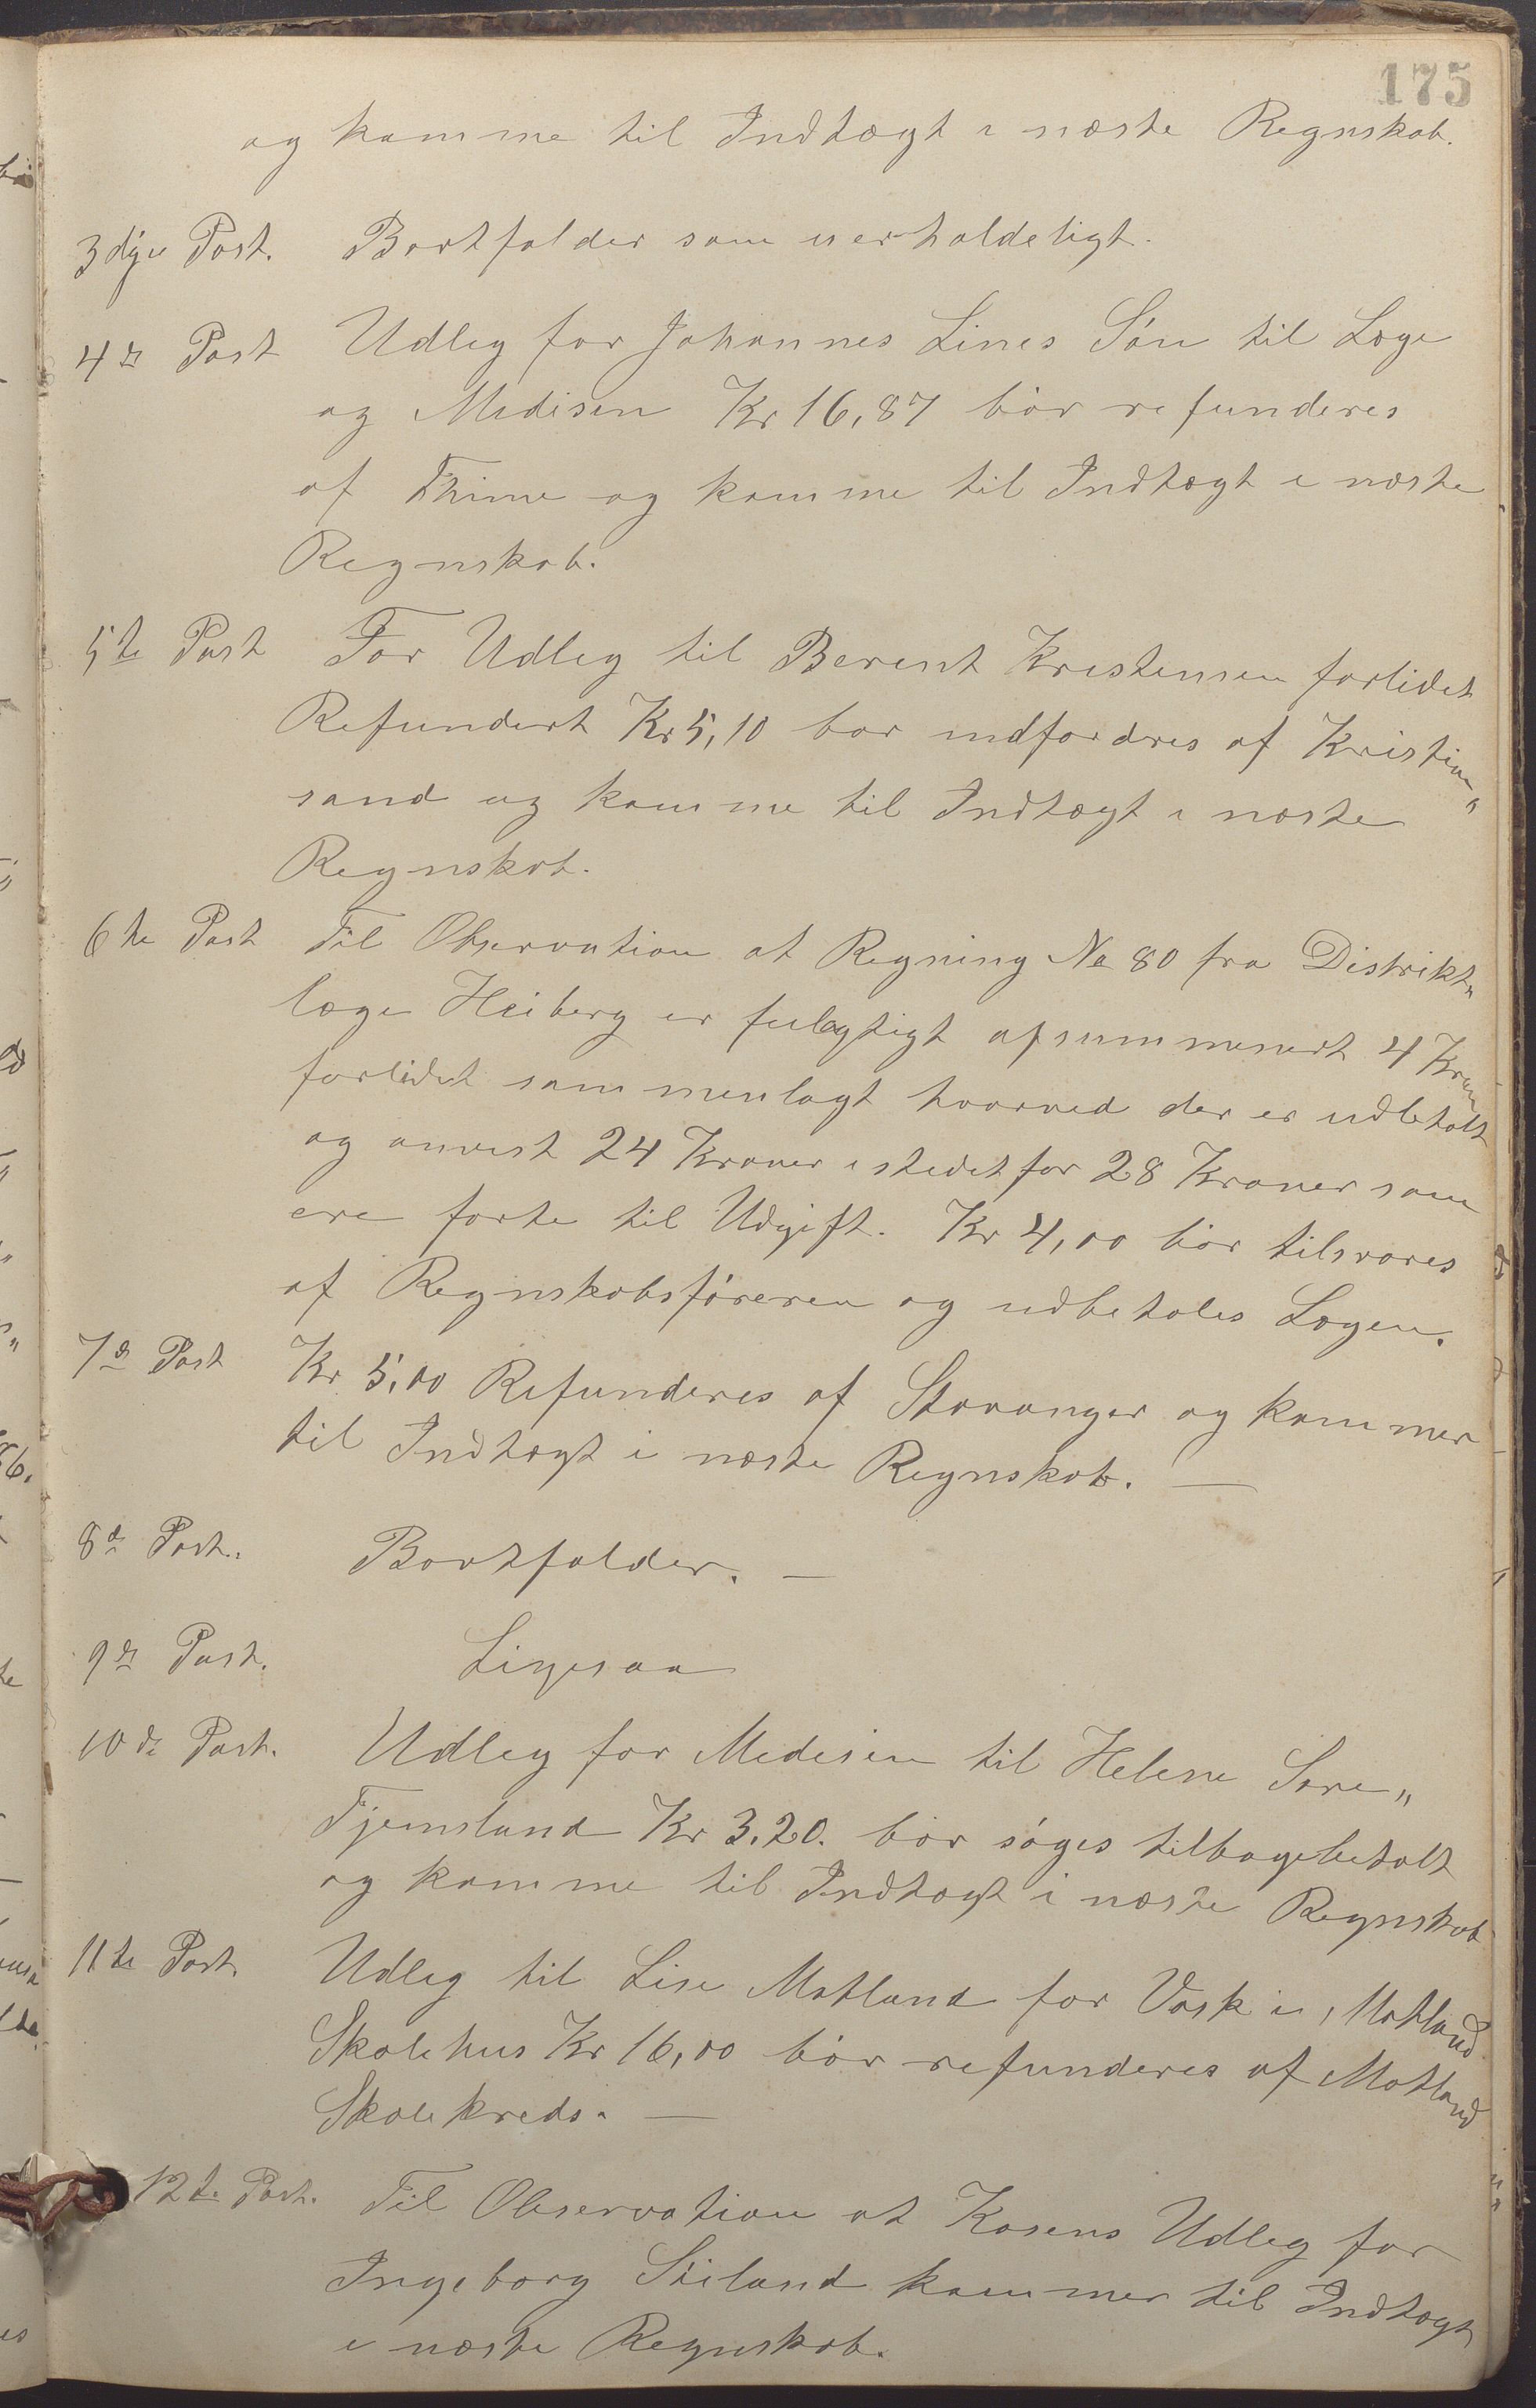 175
og komme til Indtægt i næste Regnskab.
3die Post. Bortfalder som uerholdeligt.
4de Post Udleg for Johannes Lines Søn til Læge
og Medisin Kr 16,87 bør refunderes
af Thime og komme til Indtægt i næste
Regnskab.
5te Post For Udleg til Berent Kristensen forlidet
Refundert Kr 5,10 bør indfordres af Kristian„
sand og komme til Indtægt i næste
Regnskab.
6te Post Til Observation at Regning No 80 fra Distrikt„
læge Heiberg er feilagtigt opsummeret 4 Kroner
forlidet sammenlagt hvorved der er udbetalt
og anvist 24 Kroner istedet for 28 Kroner som
ere førte til Udgift. Kr 4,00 bør tilsvares
af Regnskabsføreren og udbetales Lægen.
7de Post Kr 5,00 Refunderes af Stavanger og kommer
til Indtægt i næste Regnskab. —
8de Post. Bortfalder. —
9de Post. Ligesaa
10de Post. Udleg for Medisin til Helene Søre„
Tjemsland Kr 3.20. bør søges tilbagebetalt
og komme til Indtægt i næste Regnskab
11te Post. Udleg til Lise Motland for Vask i Motland
Skolehus Kr 16,00 bør refunderes af Motland
Skolekreds. —
12te Post. Til Observation at Kasens Udleg for
Ingeborg Stiland kommer til Indtægt
i næste Regnskab.